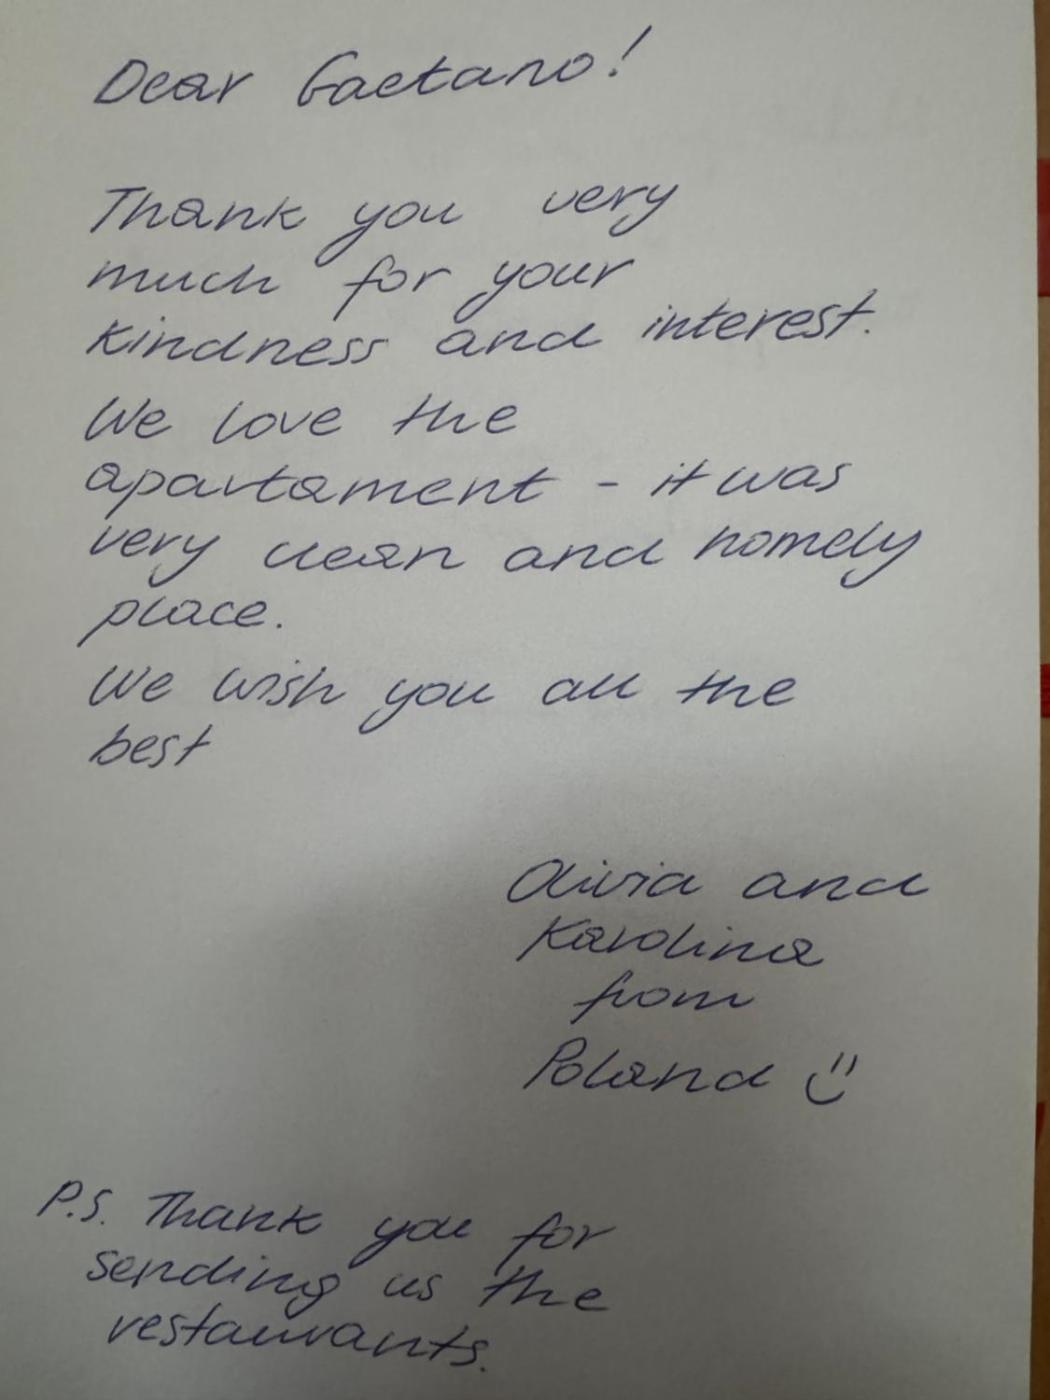 Dear Gaetano!
Thank you very
much for your
kindness and interest.
We love the
apartament - it was
very clean and homely
place.
We wish you all the
best
Oliwia and
Karolina
from
Poland
P.S. Thank you for
sending us the
restaurants.